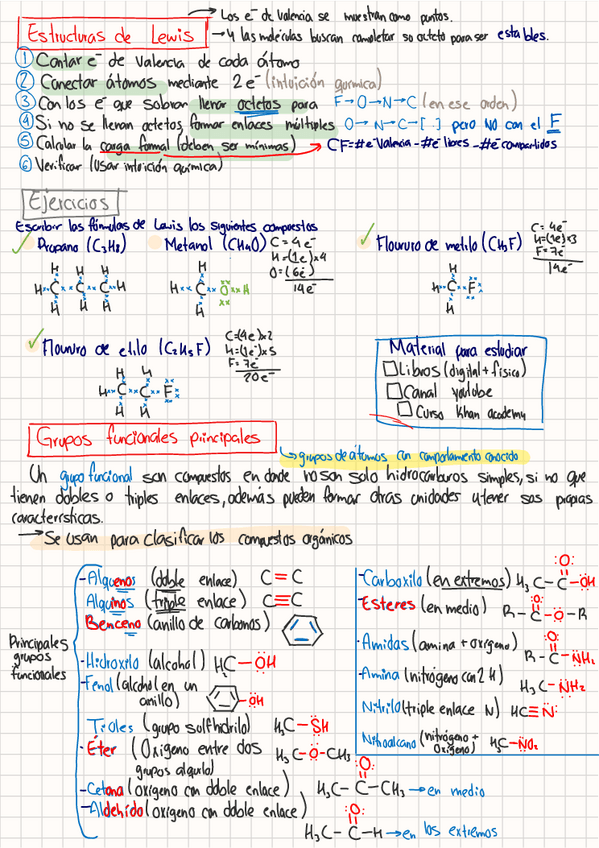 Estructuras de Lewis
→ Los e⁻ de valencia se muestran como puntos.
→ y las moléculas buscan completar su octeto para ser estables.
① Contar e⁻ de valencia de cada átomo
② Conectar átomos mediante 2e⁻ (intuición química)
③ Con los e⁻ que sobran llenar octetos para F→O→N→C (en ese orden)
④ Si no se llenan octetos, formar enlaces múltiples O→ N→ C→ [ ] pero NO con el F
⑤ Calcular la carga formal (deben ser mínimas) → CF=#e⁻ valencia - #e⁻ libres - #e⁻ compartidos
⑥ Verificar (usar intuición química)
Ejercicios
Escribir las fórmulas de Lewis los siguientes compuestos
✓ Propano (C₃H₈)
H H H
H C C C H
H H H
Metanol (CH₄O)
C = 4e⁻
H = (1e⁻)x4
O = (6e⁻)
14e⁻
H
H C O H
H
✓ Floururo de metilo (CH₃F)
C = 4e⁻
H=(1e⁻)x3
F=7e⁻
14e⁻
H
H C F
H
✓ Floururo de etilo (C₂H₅F)
C=(4e⁻)x2
H=(1e⁻)x5
F=7e⁻
20e⁻
H H
H C C F
H H
Material para estudiar
Libros (digital + físico)
Canal youtube
Curso Khan academy
Grupos funcionales principales
→ grupos de átomos con comportamiento conocido
Un grupo funcional son compuestos en donde no son solo hidrocarburos simples, si no que
tienen dobles o triples enlaces, además pueden formar otras unidades y tener sus propias
características.
→ Se usan para clasificar los compuestos orgánicos
Principales
grupos
funcionales
-Alquenos (doble enlace) C=C
Alquinos (triple enlace) C≡C
Benceno (anillo de carbonos)
-Hidroxilo (alcohol) H₃C-OH
-Fenol (alcohol en un
anillo) -OH
Tioles (grupo sulfhidrilo) H₃C-SH
-Éter (Oxígeno entre dos
grupos alquilo) H₃C-O-CH₃
-Cetona (oxígeno con doble enlace) H₃C-C-CH₃ → en medio
:O:
-Aldehído (oxígeno con doble enlace) H₃C-C-H → en los extremos
:O:
-Carboxilo (en extremos) H₃C-C-OH
:O:
Esteres (en medio) R-C-O-R
:O:
-Amidas (amina + oxígeno) R-C-NH₂
:O:
-Amina (nitrógeno con 2 H) H₃C-NH₂
Nitrilo (triple enlace N) HC≡N:
Nitroalcano (nitrógeno + oxígeno) H₃C-NO₂